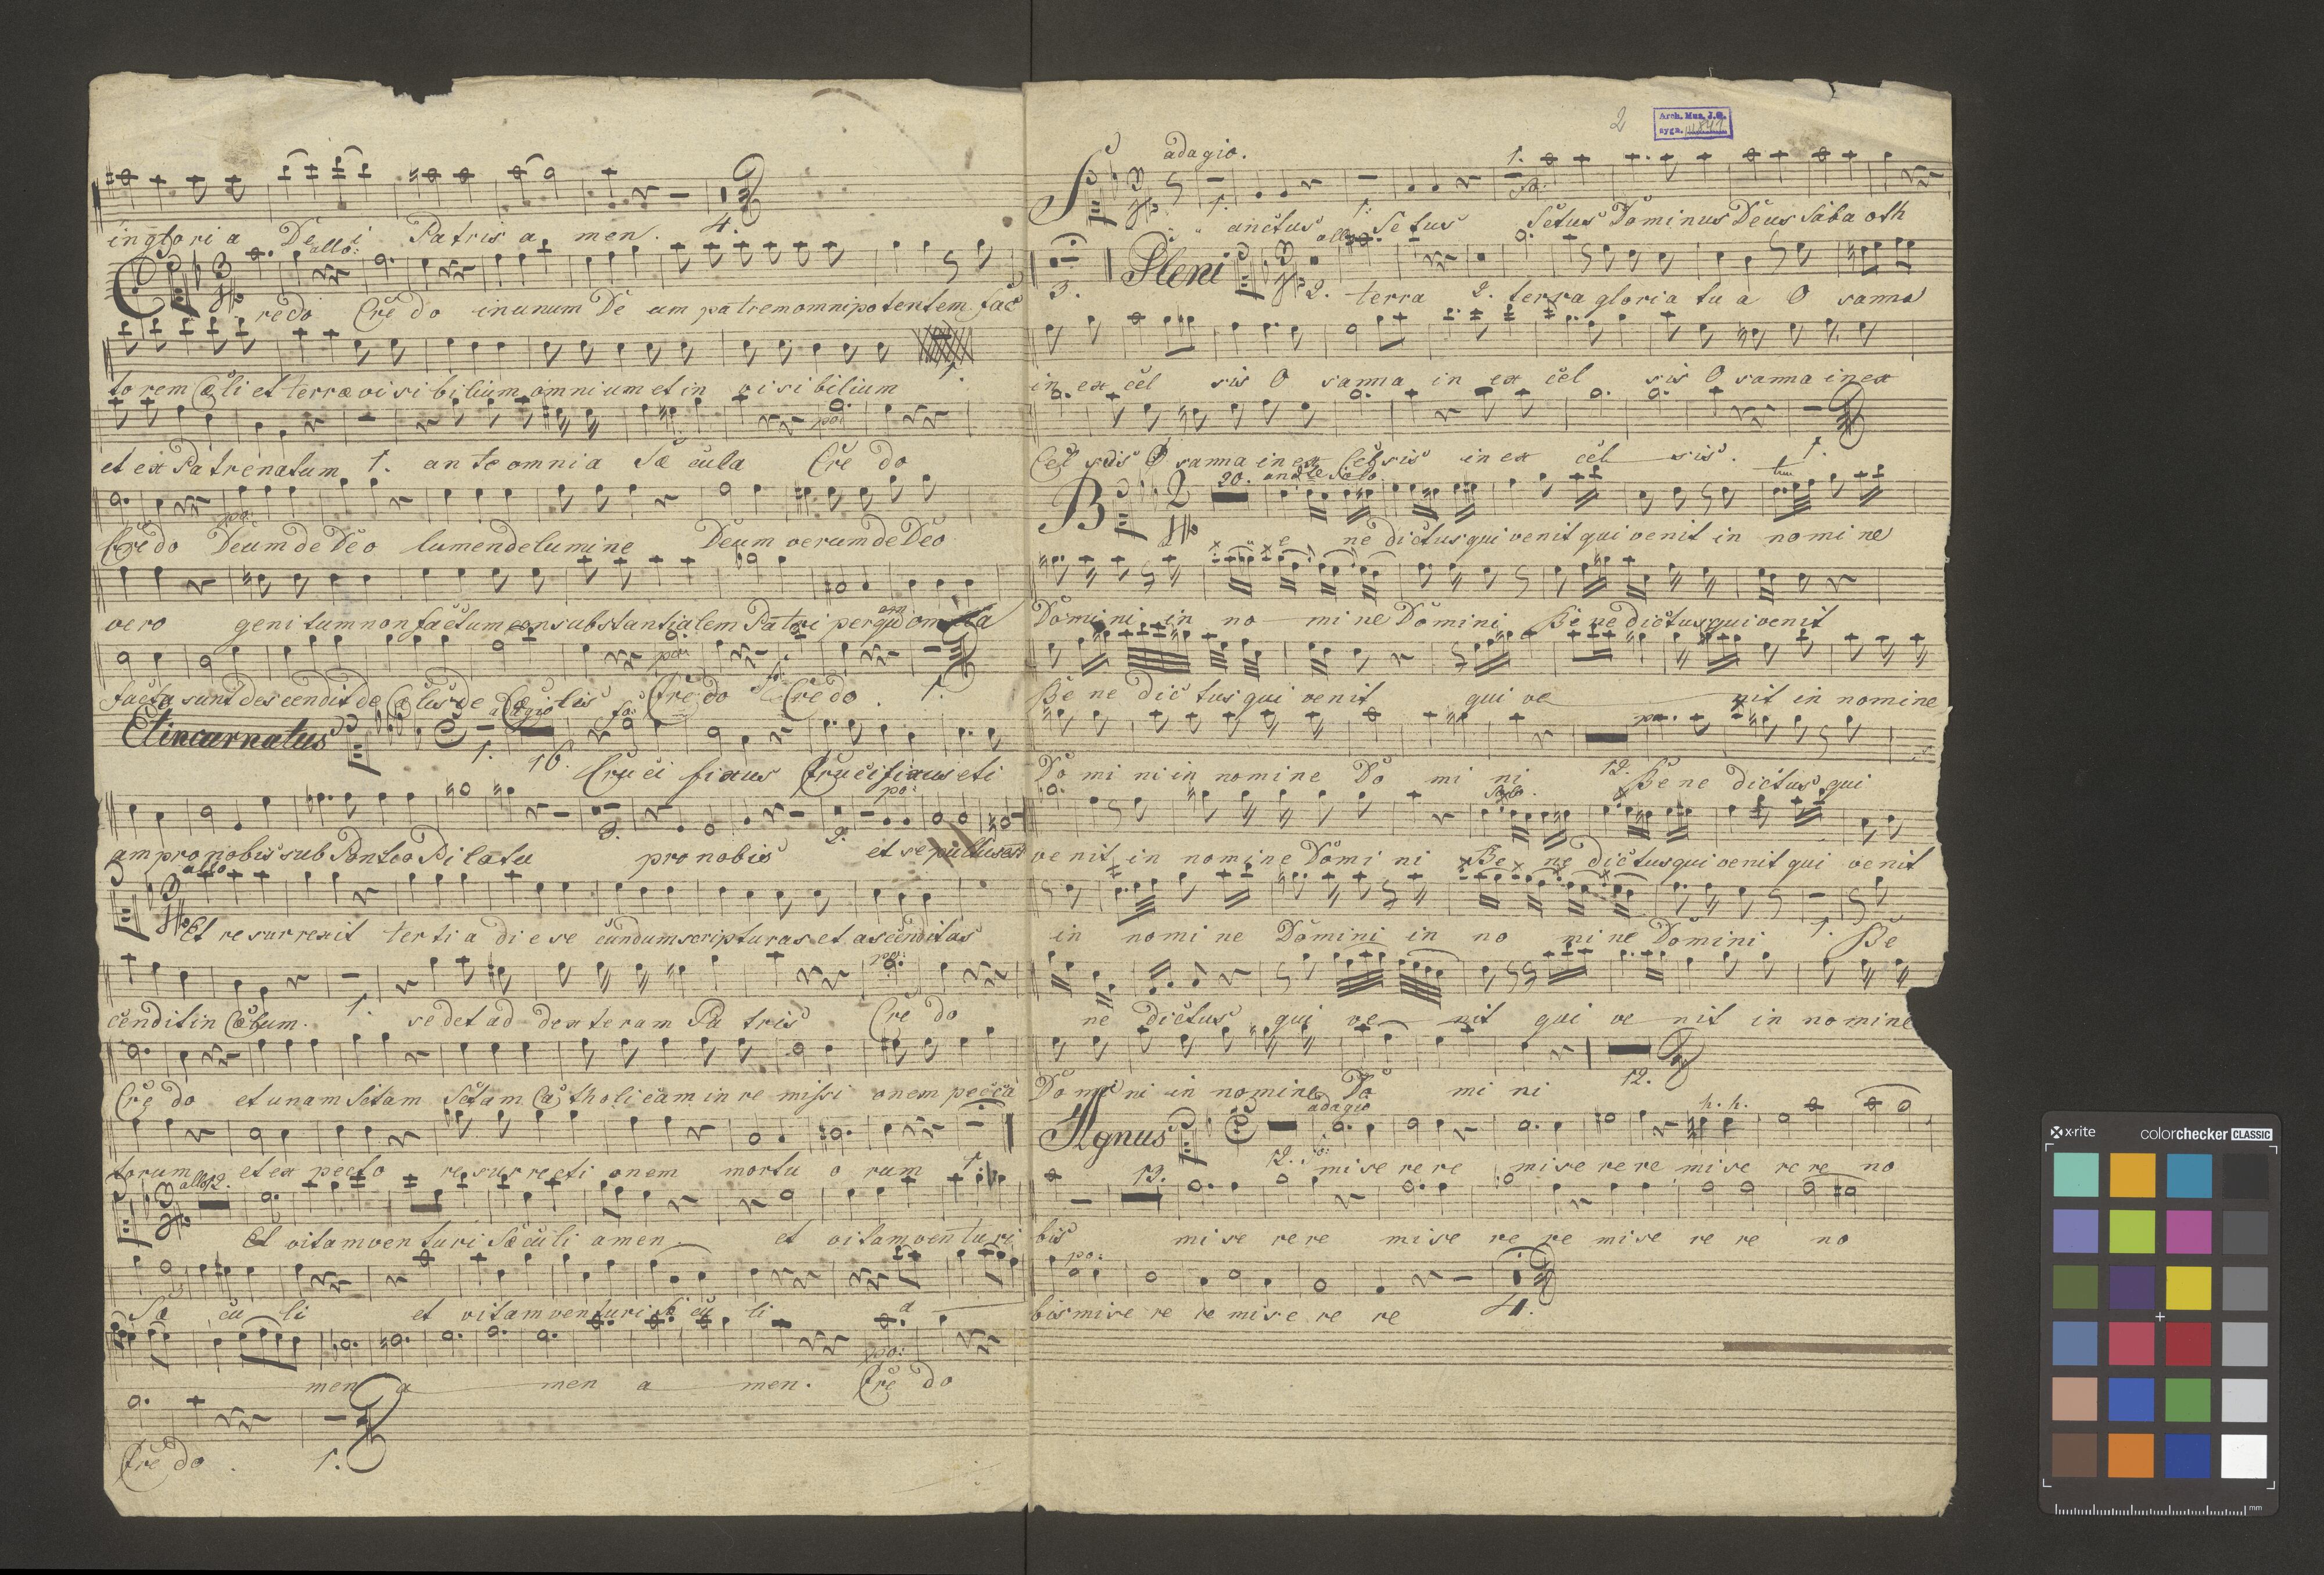 in gloria De i Patris a men. 4.
allo:
Credo Cre do in unum De um patrem omnipotentem fac
torem Cæli et terræ visi bilium omnium et in visi bilium 1.
et ex Patre natum 1. ante omnia Sæ cula Cre do
po:
Cre do Deum de Deo lumen de lumine Deum verum de Deo
po:
vero genitum non factum consubstantialem Patri per quem om
facta sunt descendit de Cælis de Cælis Cre do Cre do. 1.
po:
Et incarnatus adagio 1. 16. fo: Cruci fixus Crucifixus eti
am pro nobis sub Pontio Pilato 3. pro nobis 2. po: et sepultus est
allo
Et resurrexit tertia die se cundum scripturas et ascendit as
cendit in Cælum. 1. sedet ad dexteram Pa tris Cre do
po:
Cre do et unam Sctam Sctam Ca tholicam in re missi onem pecca
torum et ex pecto resurrecti onem mortu o rum 1.
allo 12.
Et vitam venturi Sæculi amen. et vitam venturi
Sæ cu li et vitam venturi Sæ cu li a
men a men a men. Cre do
po:
Cre do. 1.
2
Arch. Mus. J.G.
sygn.
adagio.
Sanctus 1. Sctus 1. Sctus Dominus Deus Saba oth
3. Pleni allo 2. terra 2. terra gloria tu a O sanna
in ex cel sis O sanna in ex cel sis O sanna in ex
Cel sis O sanna in ex Celsis in ex cel sis. 1.
20. andte Solo
B e ne dictus qui venit qui venit in nomi ne
Domini in no mi ne Domini Be ne dictus qui venit
Be ne dic tus qui venit qui ve nit in nomine
Do mi ni in nomine Do mi ni 12. Be ne dictus qui
venit in nomine Domi ni Be ne dictus qui venit qui venit
in nomi ne Domini in no mi ne Domini 1. Be
ne dictus qui ve nit qui ve nit in nomine
Do mi ni in nomine Do mi ni 12.
Agnus adagio h. h.
12. fo: mise re re mise re re mise re re no
13.
bis mise re re mise re re mise re re no
po:
bis mise re re mise re re 4.